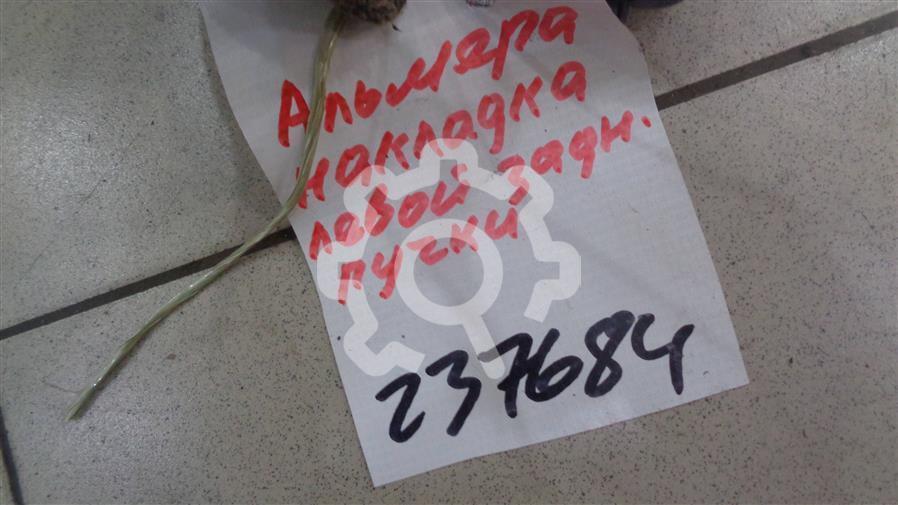 Альмера
накладка
левой задн.
ручки
237684